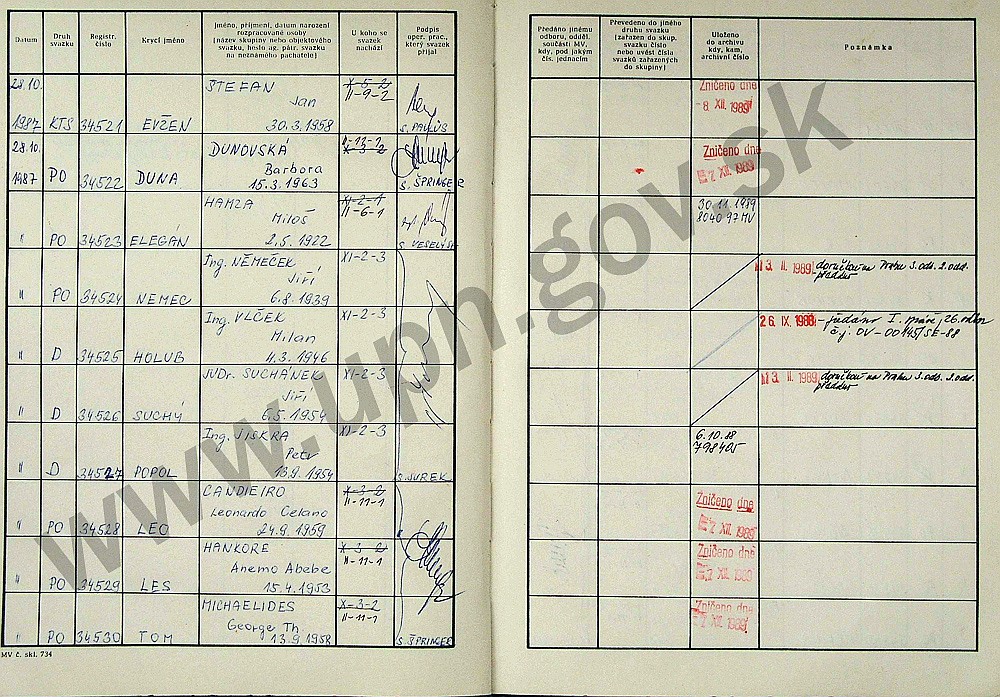 Datum
Druh svazku
Registr. číslo
Krycí jméno
Jméno, příjmení, datum narození rozpracované osoby (název skupiny nebo objektového svazku, heslo ag. pátr. svazku na neznámého pachatele)
U koho se svazek nachází
Podpis oper. prac., který svazek přijal
Předáno jinému odboru, odděl. součásti MV, kdy, pod jakým čís. jednacím
Převedeno do jiného druhu svazku (zařazen do skup. svazku číslo nebo uvést čísla svazků zařazených do skupiny)
Uloženo do archivu kdy, kam, archivní číslo
Poznámka
28.10. 1987 KTS 34521 EVŽEN
ŠTEFAN
Jan
30.3.1958
X-5-2
II-9-2
S. PAVLŮS
Zničeno dne
-8 XII 1989
28.10. 1987 PO 34522 DUNA
DUNOVSKÁ
Barbora
15.3.1963
II-11-1
X-3-2
S. ŠPRINGER
Zničeno dne
-7 XII. 1989
" PO 34523 ELEGÁN
HAMZA
Miloš
2.5.1922
XI-2-1
II-6-1
S VESELÝ
30.11.1989
8040 97 MV
" PO 34524 NEMEC
Ing. NĚMEČEK
Jiří
6.8.1939
XI-2-3
13. II. 1989
" D 34525 HOLUB
Ing. VLČEK
Milan
4.3.1946
XI-2-3
26. IX. 1988 - předáno I. správě, 26. odbor
č.j. OV-00145/SE-88
" D 34526 SUCHÝ
JUDr. SUCHÁNEK
Jiří
6.5.1954
XI-2-3
13. II. 1989
" D 34527 POPOL
Ing. JISKRA
Petr
13.9.1954
XI-2-3
S JUREK
6.10.88
798405
" PO 34528 LEO
CANDIEIRO
Leonardo Celano
24.9.1959
X-3-2
II-11-1
Zničeno dne
-7 XII. 1989
" PO 34529 LES
HANKORE
Anemo Abebe
15.4.1953
X-3-2
II-11-1
Zničeno dne
-7 XII. 1989
" PO 34530 TOM
MICHAELIDES
George Th
13.9.1958
X-3-2
II-11-1
S. ŠPRINGER
Zničeno dne
-7 XII. 1989
MV č. skl. 734
www.upn.gov.sk